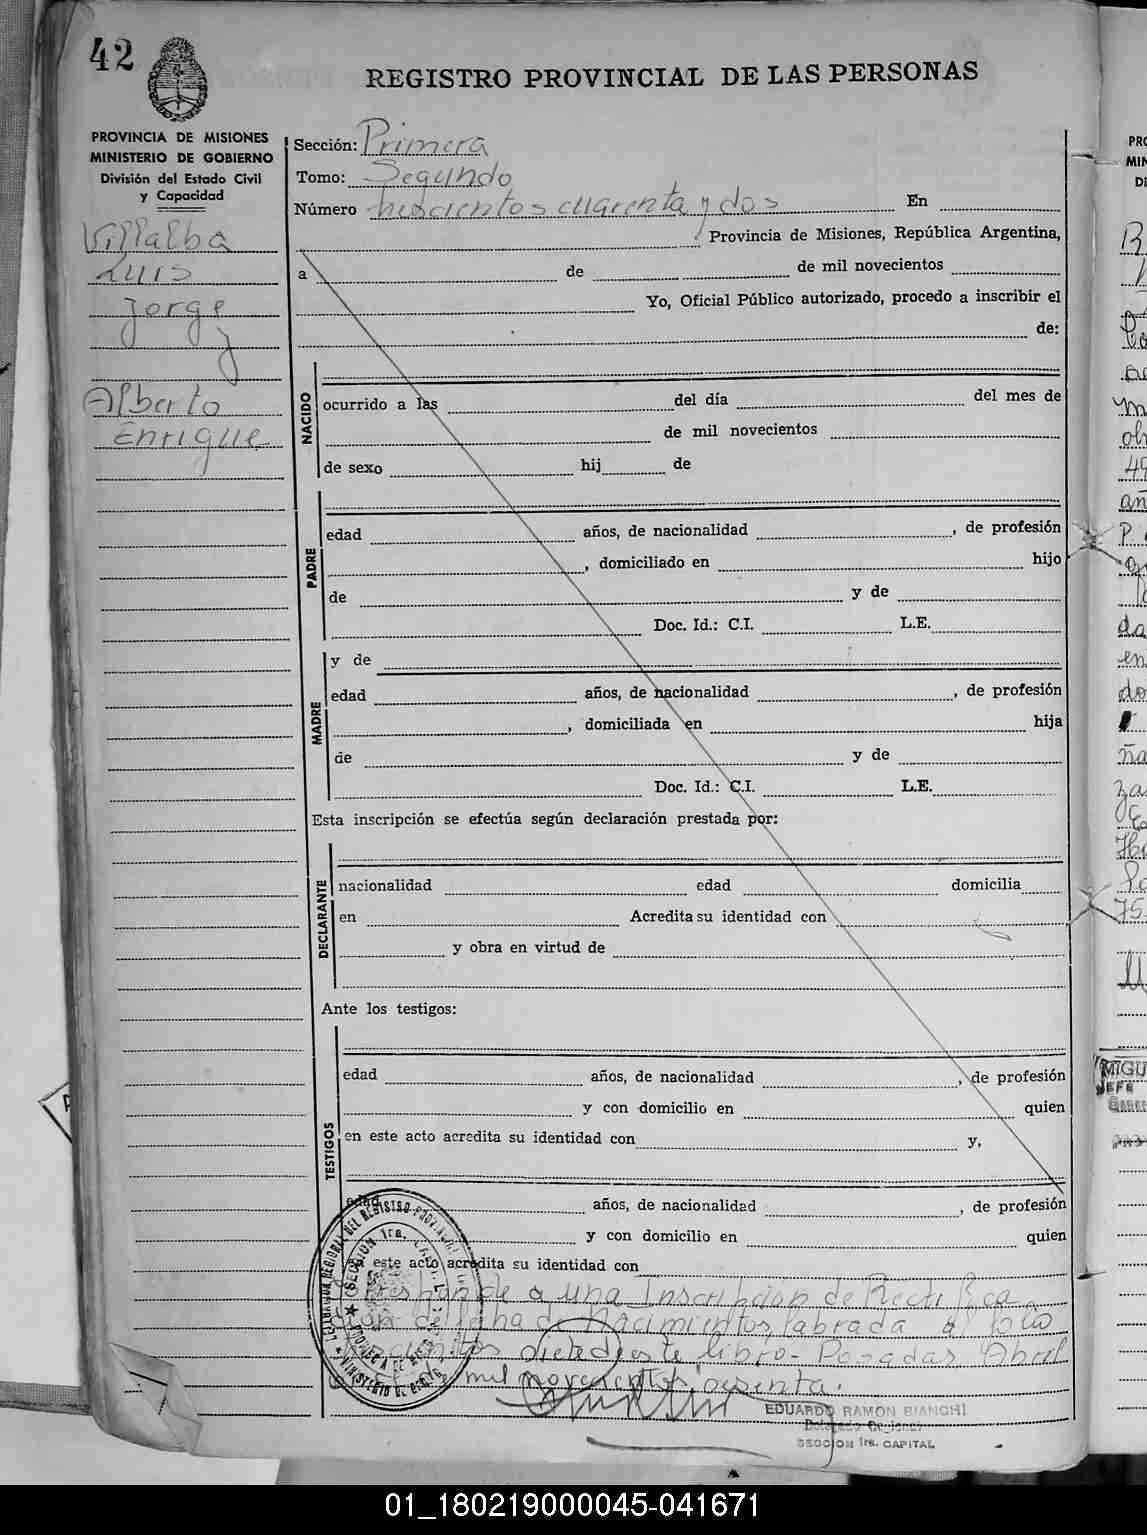 42
REGISTRO PROVINCIAL DE LAS PERSONAS
PROVINCIA DE MISIONES
MINISTERIO DE GOBIERNO
División del Estado Civil
y Capacidad
Villalba
Luis
Jorge
y
Alberto
Enrique
Sección: Primera
Tomo: Segundo
Número cuarenta y dos En
Provincia de Misiones, República Argentina,
a de de mil novecientos
Yo, Oficial Público autorizado, procedo a inscribir el
de:
NACIDO
ocurrido a las del día del mes de
de mil novecientos
de sexo hij de
PADRE
edad años, de nacionalidad , de profesión
, domiciliado en hijo
de y de
Doc. Id.: C.I. L.E.
MADRE
y de
edad años, de nacionalidad , de profesión
, domiciliada en hija
de y de
Doc. Id.: C.I. L.E.
Esta inscripción se efectúa según declaración prestada por:
DECLARANTE
nacionalidad edad domicilia
en Acredita su identidad con
y obra en virtud de
Ante los testigos:
TESTIGOS
edad años, de nacionalidad , de profesión
y con domicilio en quien
en este acto acredita su identidad con y,
edad años, de nacionalidad , de profesión
y con domicilio en quien
este acto acredita su identidad con
a una Inscripcion de Rectifica
de Nacimientos, labrada al folio
este libro - Posadas Abril
mil novecientos
EDUARDO RAMON BIANCHI
SECCION 1ra. CAPITAL
01_180219000045-041671